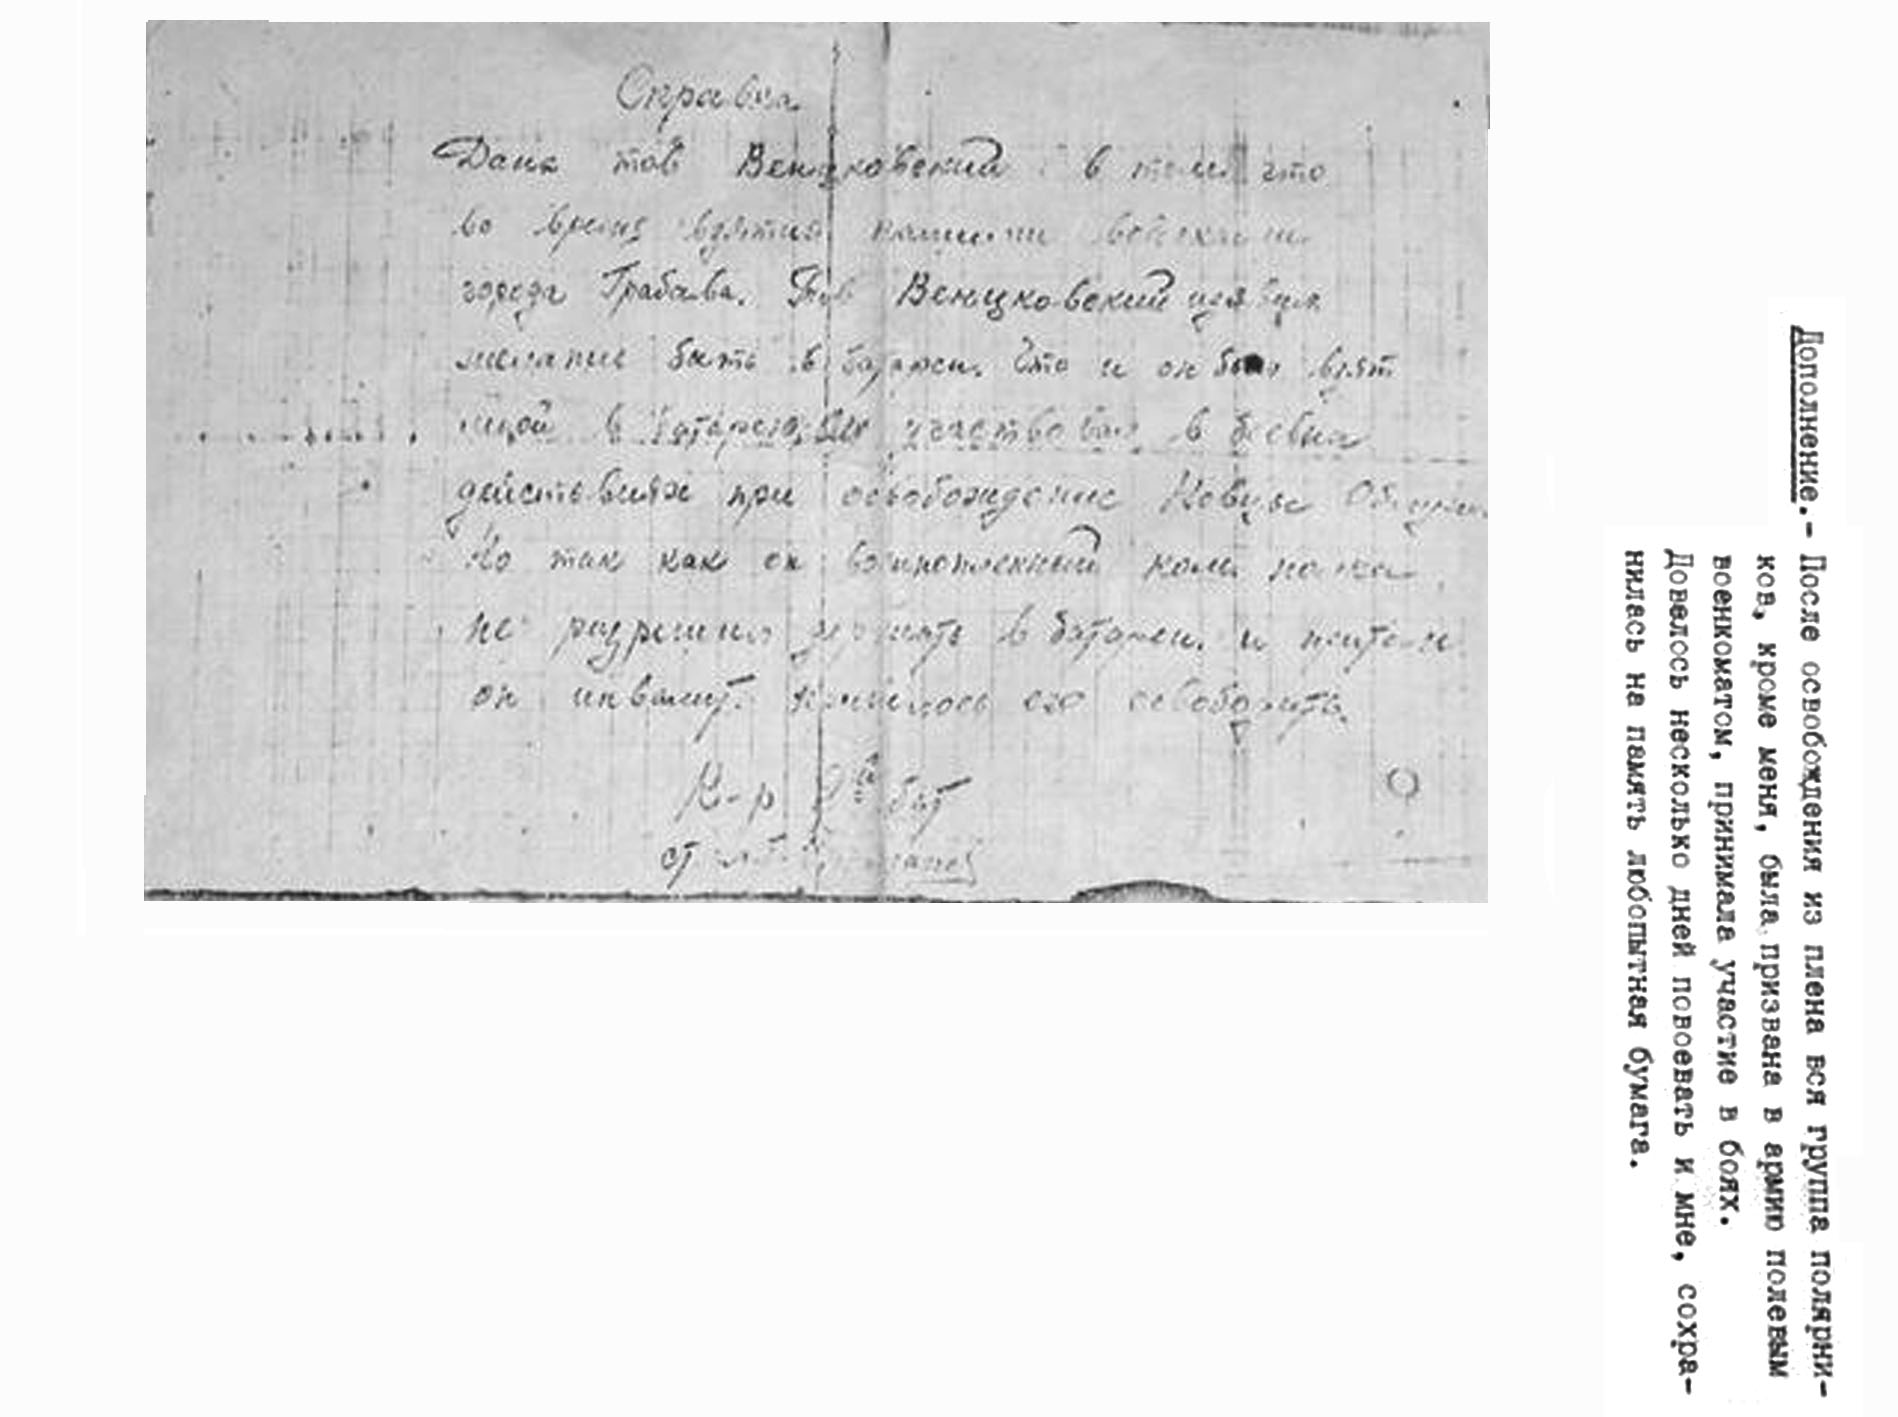 Справка
Дана тов Венцковский в том что
во время взятия нашими войсками
города Грабова. Тов Венцковский изявил
желание быть в батареи. Что и он был взят
мной в батарею, участвовал в боевых
действиях при освобождение
Но так как он военнопленный ком. полка
не разрешил держать в батареи. и притом
он инвалит. пришлось его освободить.
К-р 2й бат
ст
Дополнение.- После освобождения из плена вся группа полярни-
ков, кроме меня, была призвана в армию полевым
военкоматом, принимала участие в боях.
Довелось несколько дней повоевать и мне, сохра-
нилась на память любопытная бумага.